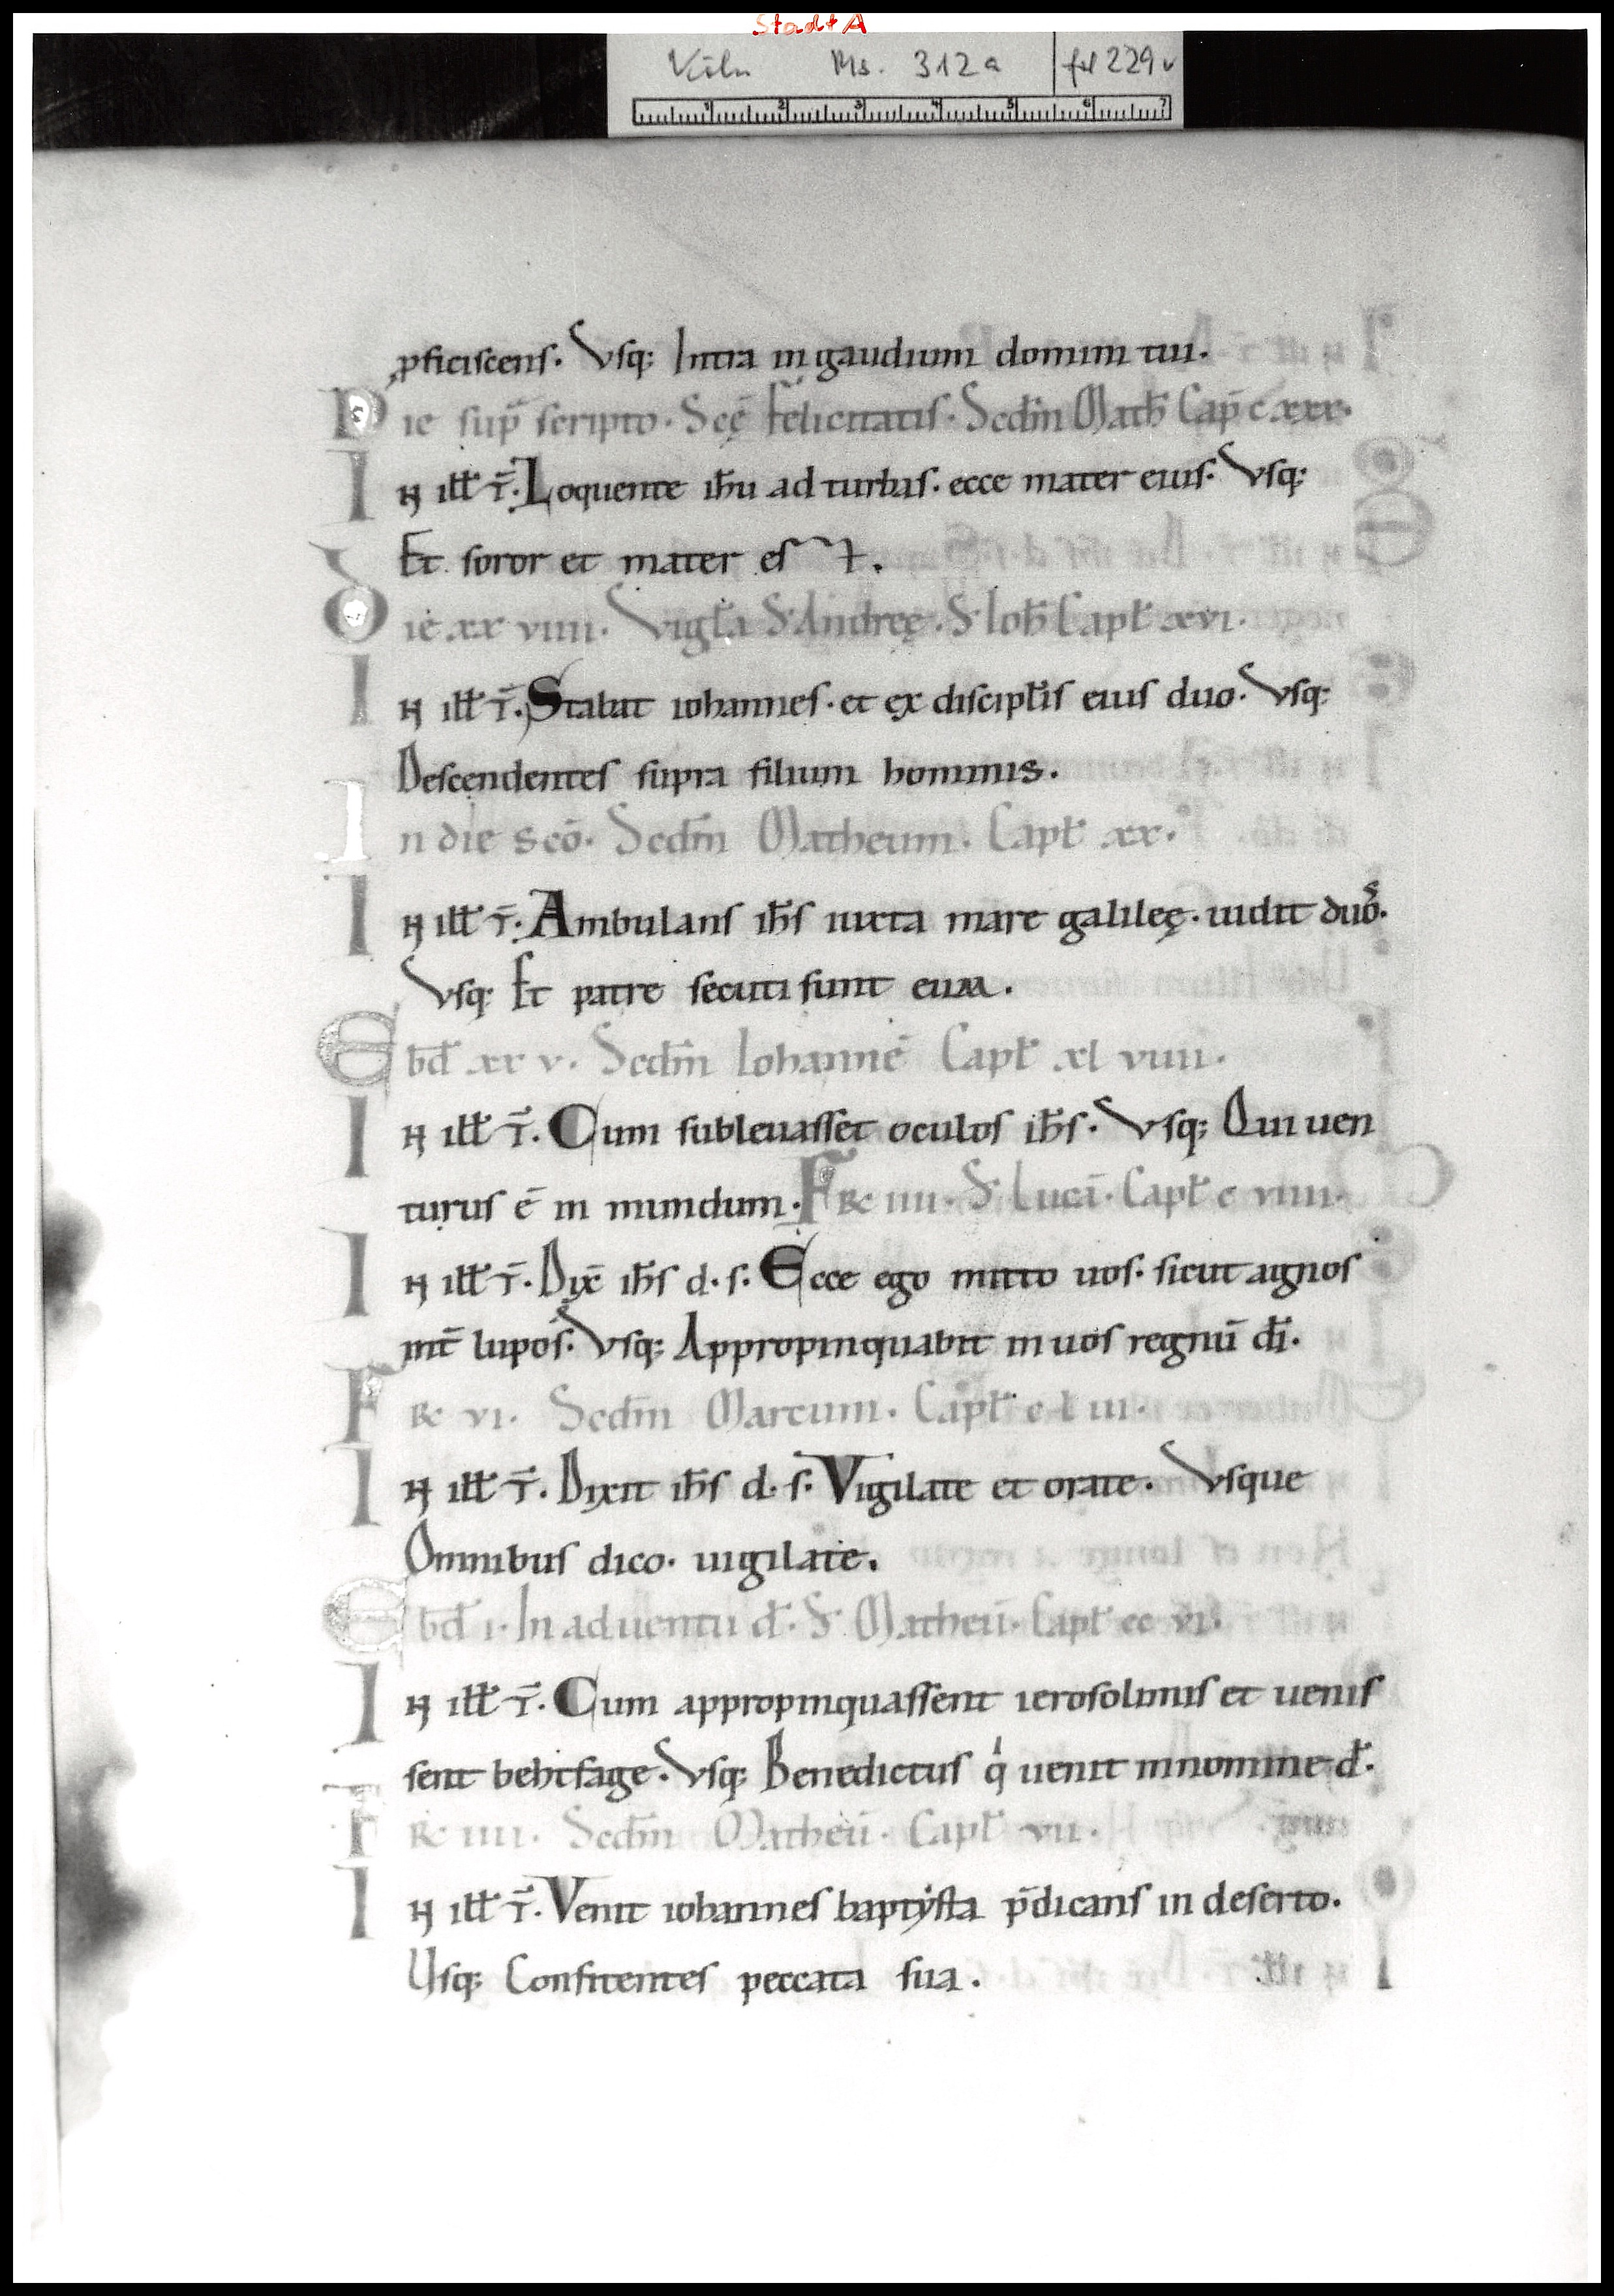 Stadt A
Köln Ms. 312a fol 229v
1 2 3 4 5 6 7
ꝓficiscens. Vsq; Intra in gaudium domini tui.
Die sup̄ scripto. Scę̄ Felicitatis. Scdm̄ Math̄ Cap̄ c xxx.
IN ill̄ T̄. Loquente ih̄u ad turbas. ecce mater eius. Vsq;
Et soror et mater est.
Die xx viiii. Vigl̄a S. Andreę. S. Ioh̄ Capl̄ xvi.
IN ill̄ T̄. Stabat iohannes. et ex discipl̄is eius duo. Vsq;
Descendentes supra filium hominis.
In die scō. Scdm̄ Matheum. Capl̄ xx.
IN ill̄ T̄. Ambulans ih̄s iuxta mare galileę. uidit duos.
Vsq; Et patre secuti sunt eum.
Ebd̄ xx v. Scdm̄ Iohannē Capl̄ xl viiii.
IN ill̄ T̄. Cum subleuasset oculos ih̄s. Vsq; Qui uen
turus ē in mundum. FR̄ iiii. S. Lucā. Capl̄ c viiii.
IN ill̄ T̄. Dix̄ ih̄s d. s. Ecce ego mitto uos. sicut agnos
int̄ lupos. Vsq; Appropinquabit in uos regnū dī.
FR̄ vi. Scdm̄ Marcum. Capl̄ c l iii.
IN ill̄ T̄. Dixit ih̄s d. s. Vigilate et orate. Vsque
Omnibus dico. uigilate.
Ebd̄ i. In aduentu d̄. S. Matheū. Capl̄ cc vi.
IN ill̄ T̄. Cum appropinquassent ierosolimis et uenis
sent behtfage. Vsq; Benedictus qi uenit innomine d̄.
FR̄ iiii. Scdm̄ Matheū. Capl̄ vii.
IN ill̄ T̄. Venit iohannes baptysta p̄dicans in deserto.
Usq; Confitentes peccata sua.